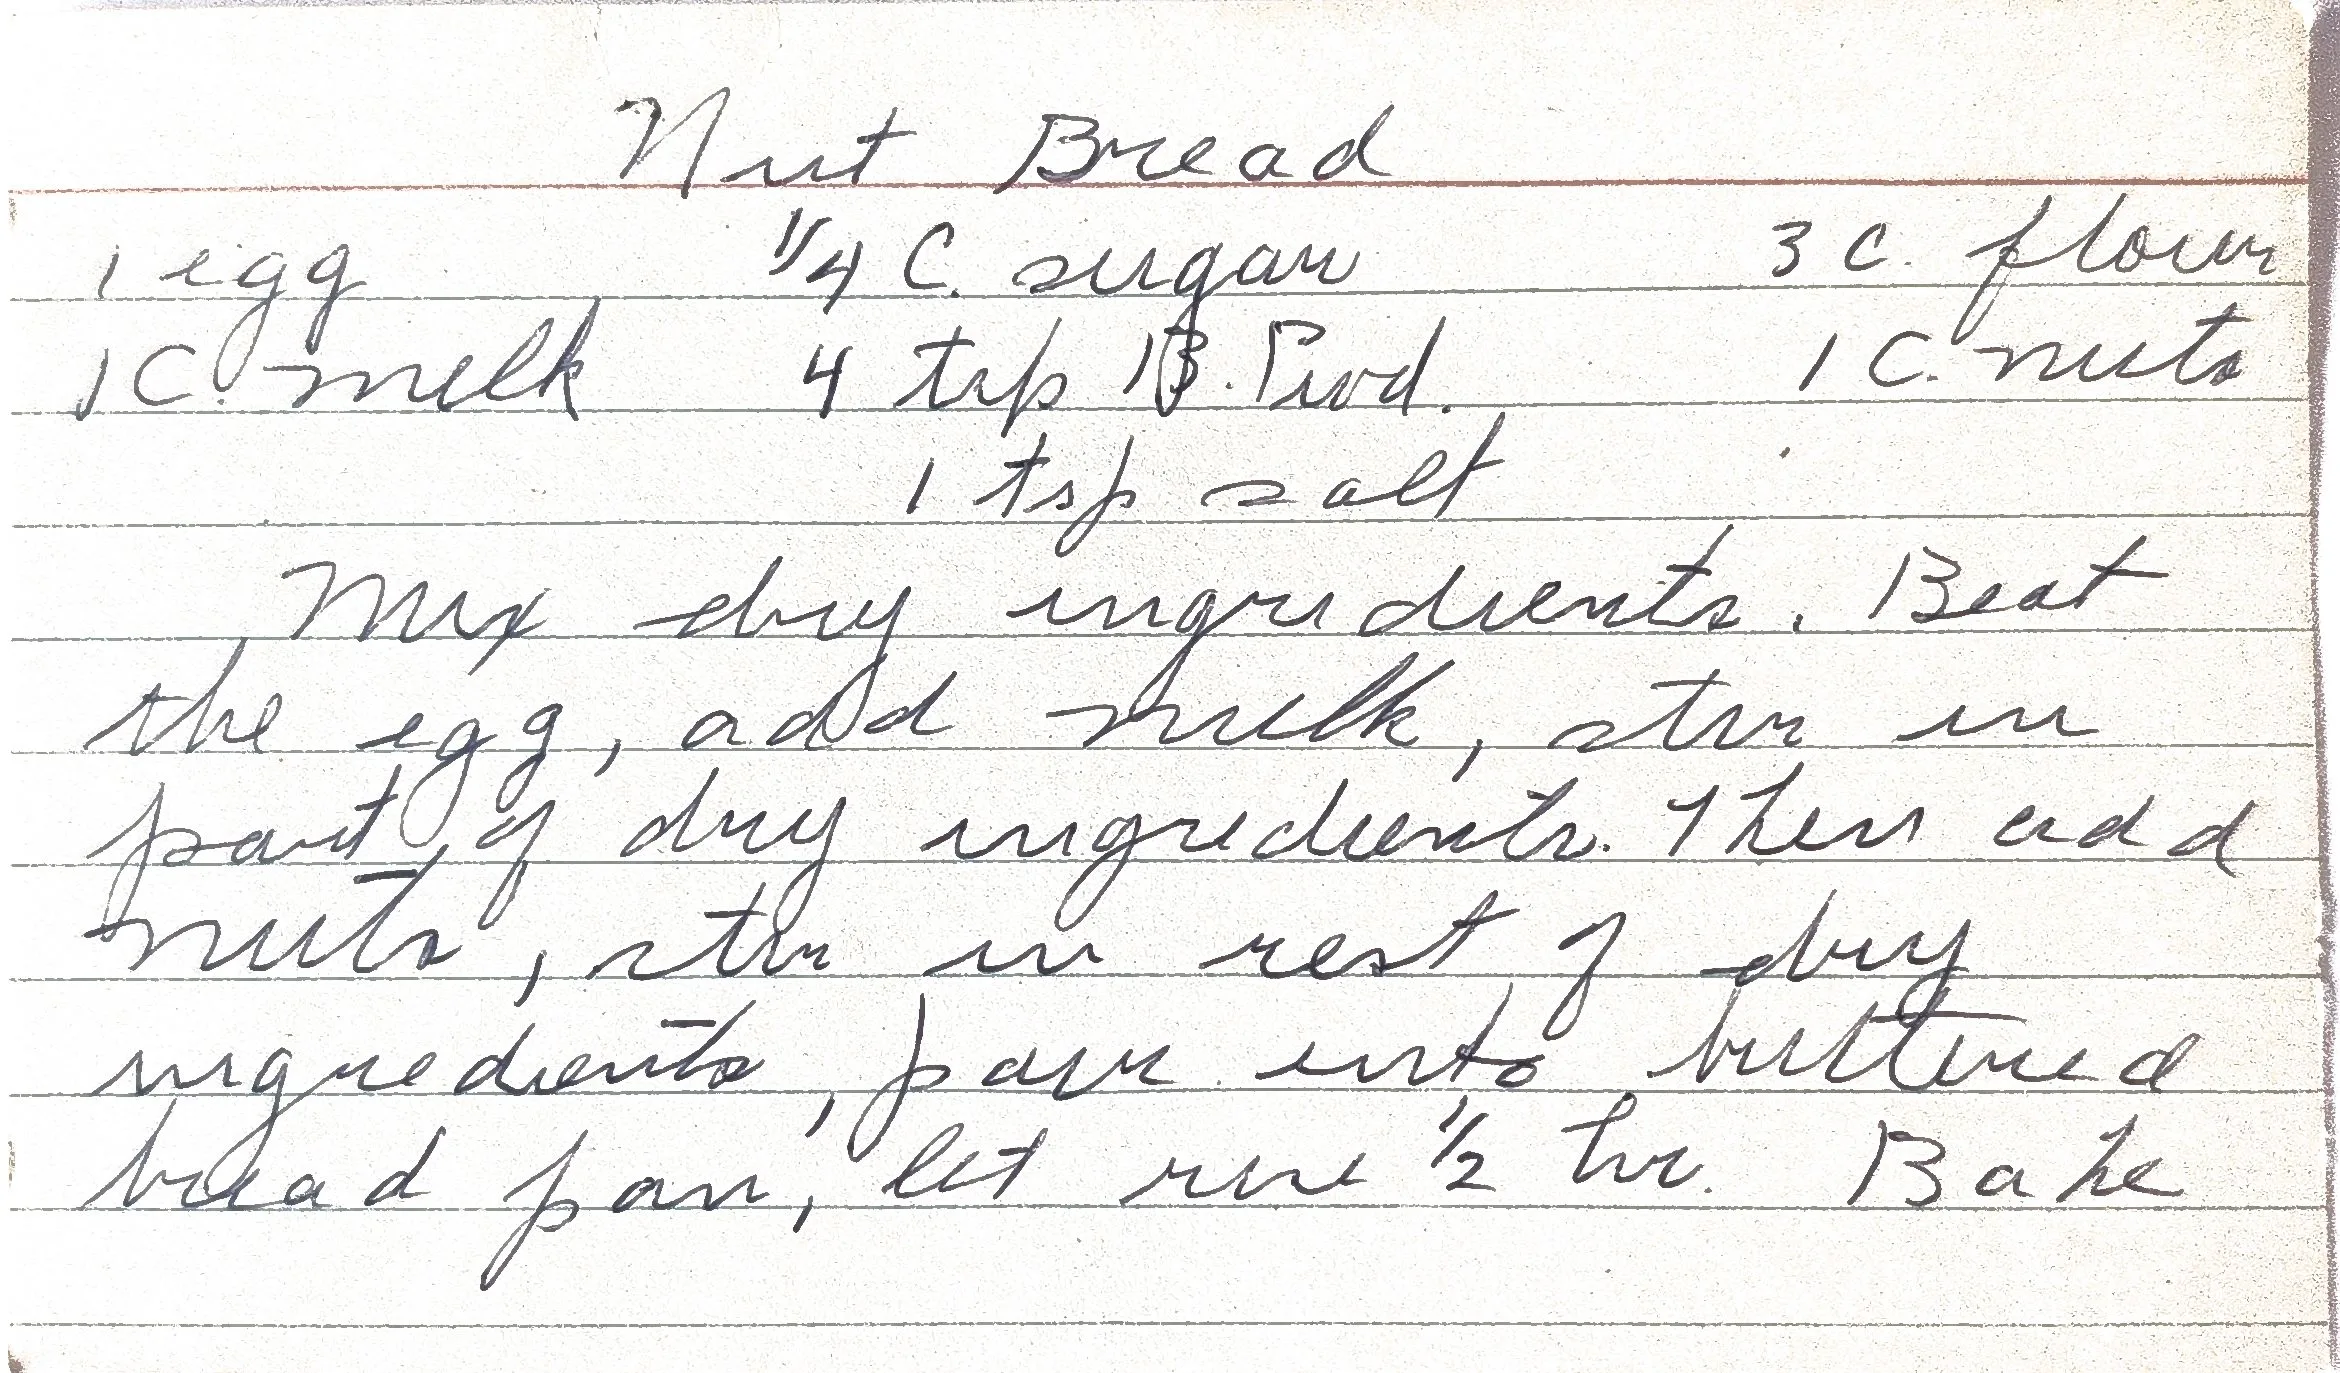 Nut Bread
1 egg 1/4 C. sugar 3 C. flour
1 C. milk 4 tsp B. Pwd. 1 C. nuts
1 tsp salt
Mix dry ingredients. Beat
the egg, add milk, stir in
part of dry ingredients. Then add
nuts, stir in rest of dry
ingredients, pour into buttered
bread pan, let rise 1/2 hr. Bake